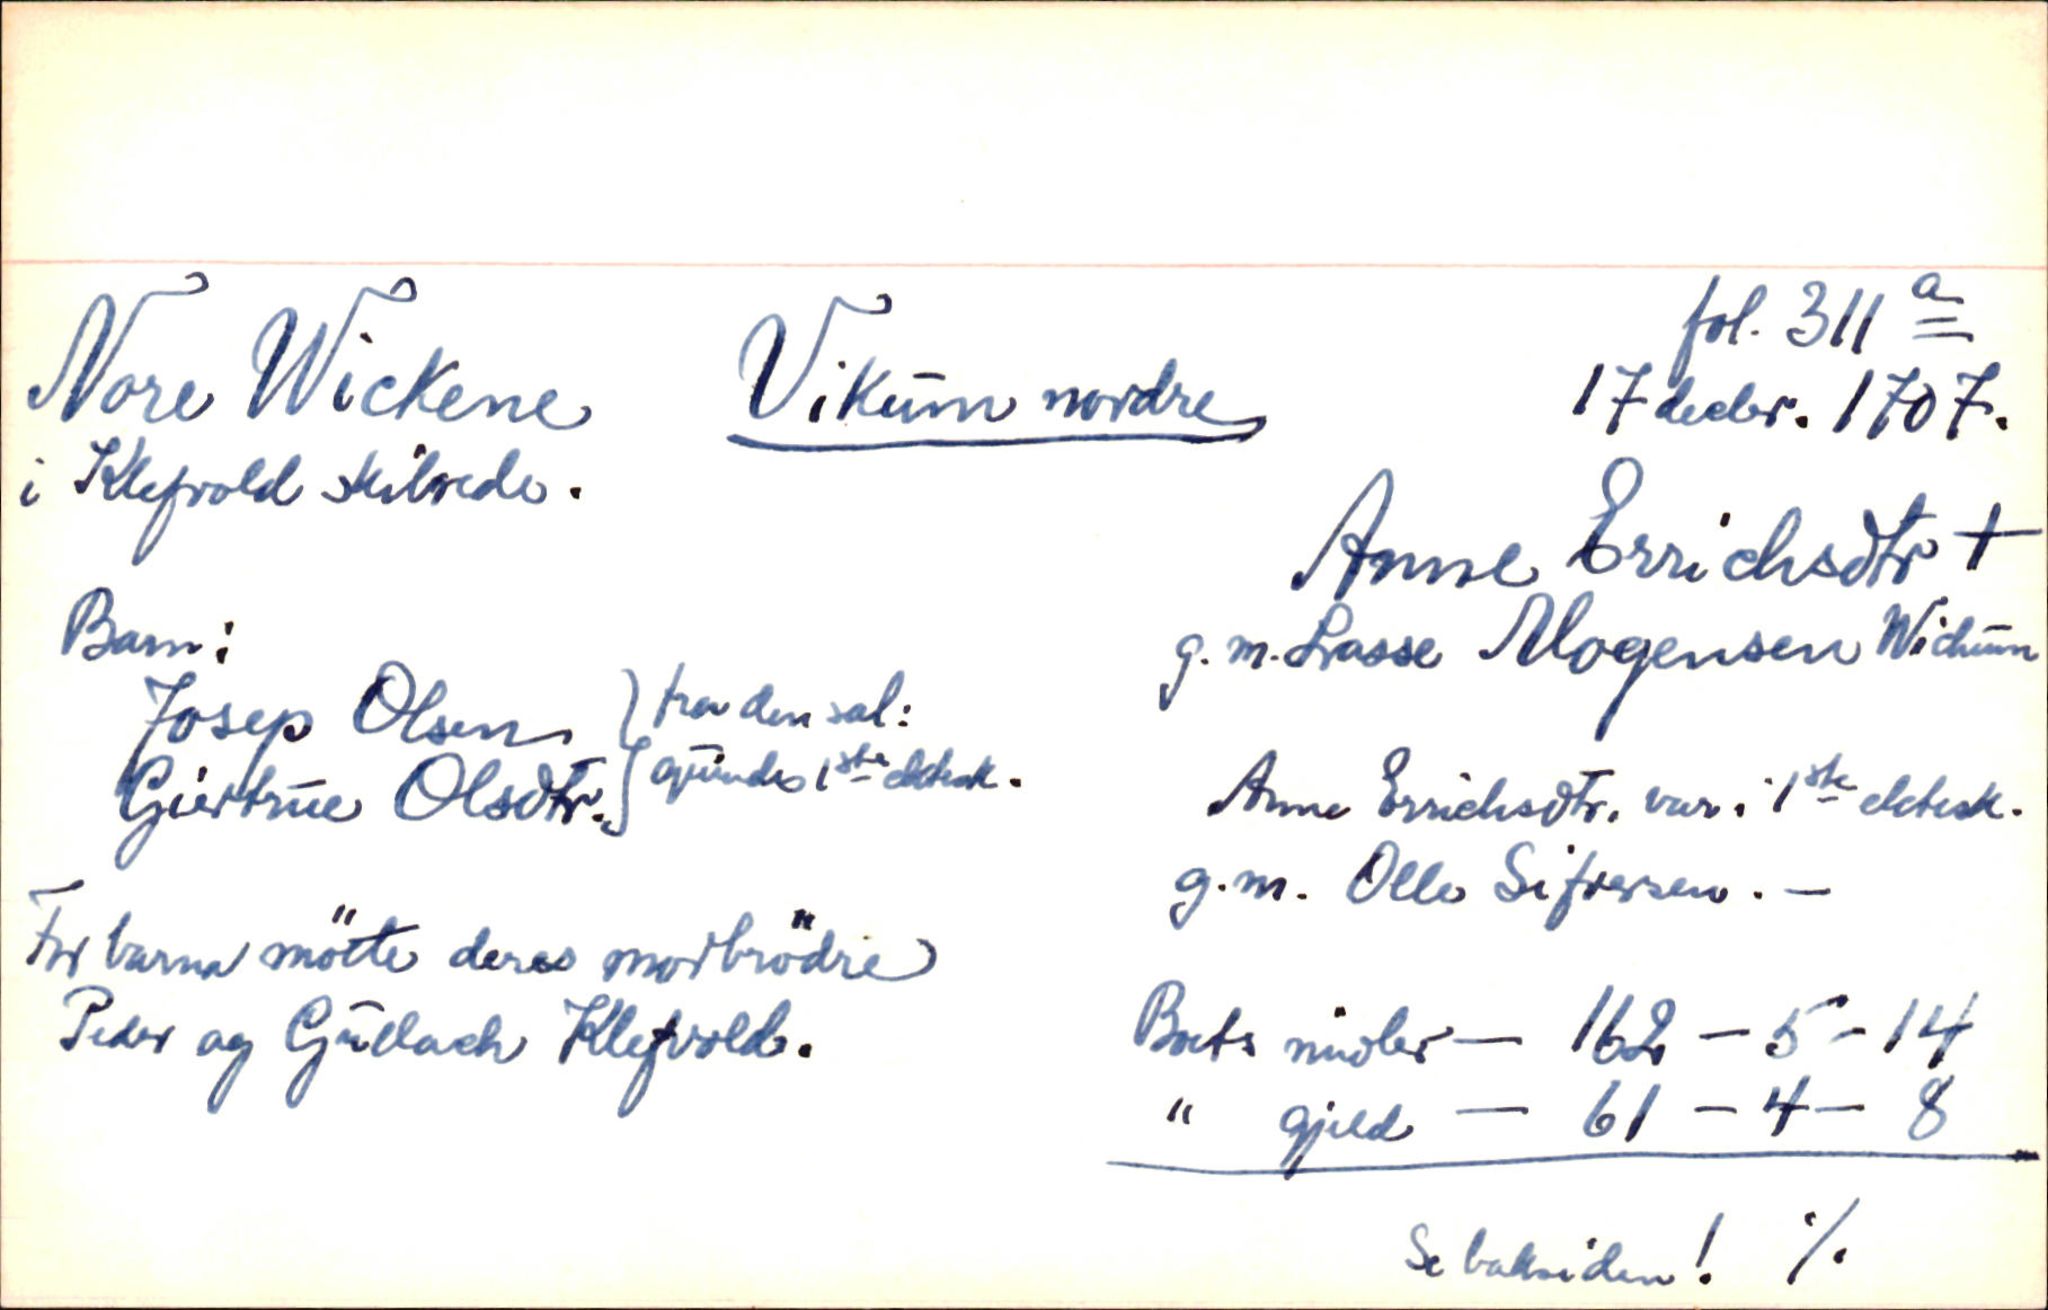 fol. 311 a
Nore Wickene Vikum nordre 17 decbr. 1707.
i Klefvold skilrede.
Anne Errichsdtr +
g. m. Lasse Mogensen Wichum
Barn:
Josep Olsen } fra den sal:
Giertrue Olsdtr. } qvindes 1ste ektesk.
Anne Errichsdtr. var i 1ste ektesk.
g. m. Olle Sifversen. —
For barna mötte deres morbrödre
Peder og Gullach Klefvold.
Boets midler — 162 — 5 - 14
" gjeld — 61 — 4 — 8
Se baksiden! ./.